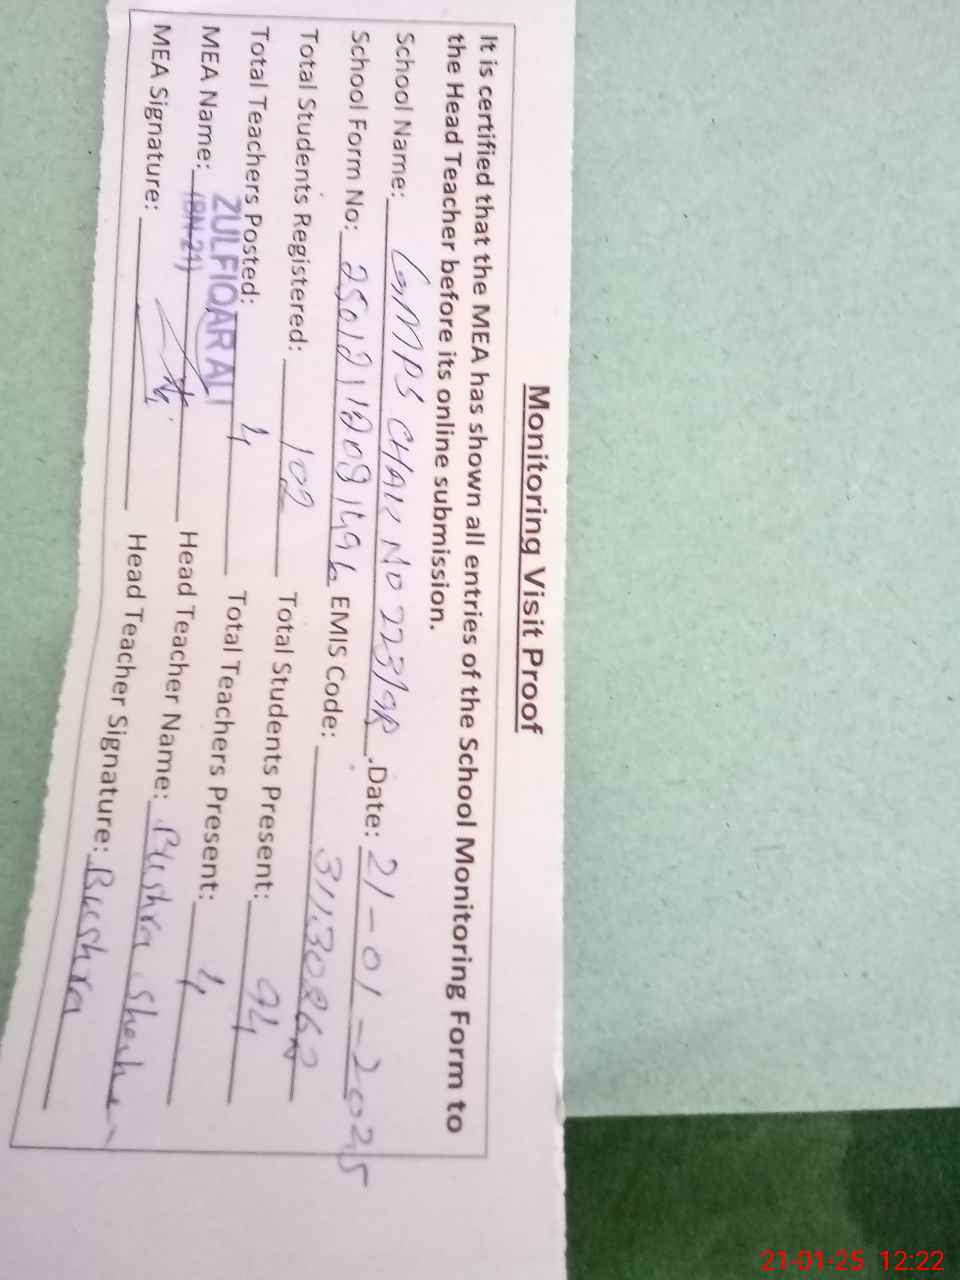 Monitoring Visit Proof
It is certified that the MEA has shown all entries of the School Monitoring Form to
the Head Teacher before its online submission.
School Name: GMPS CHAK NO 223/9R Date: 21-01-2025
School Form No: 25012112091496 EMIS Code: 31130262
Total Students Registered: 102 Total Students Present: 94
Total Teachers Posted: 4 Total Teachers Present: 4
MEA Name: ZULFIQAR ALI (BN-21) Head Teacher Name: Bushra
MEA Signature: Head Teacher Signature: Bushra
21-01-25 12:22